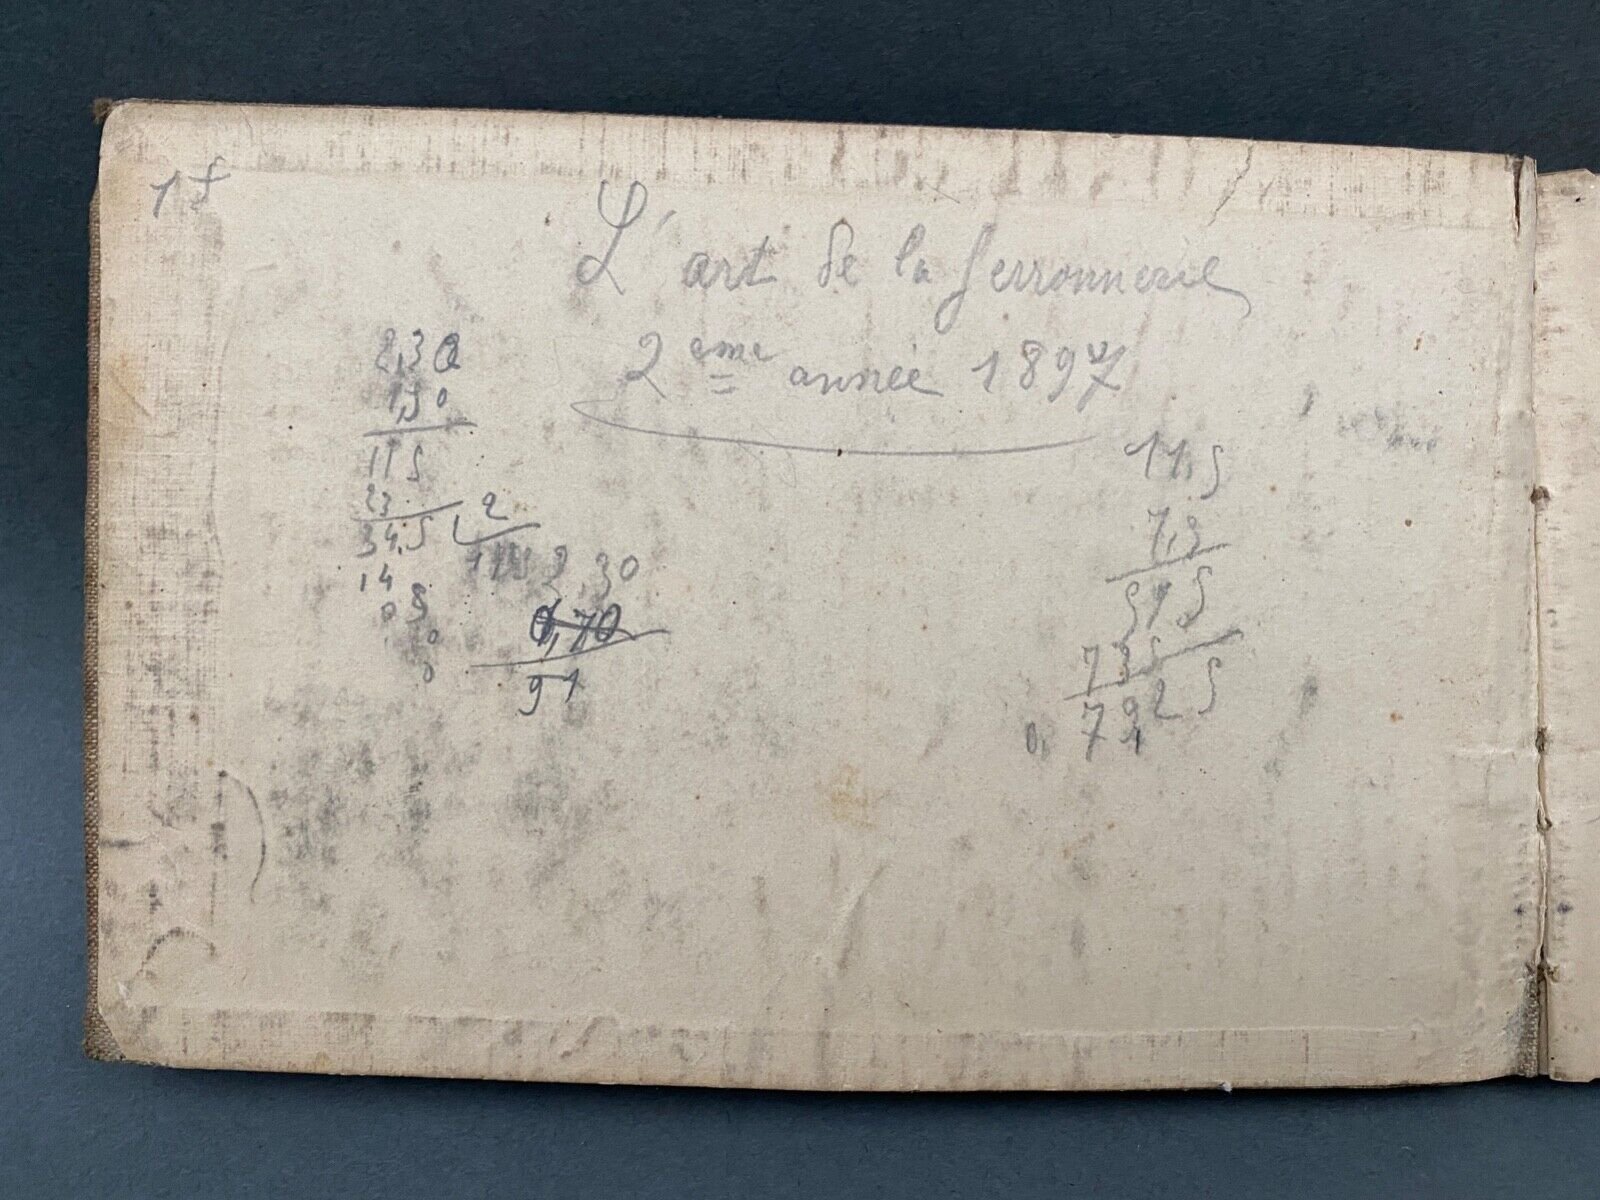 1 f
L'art de la ferronnerie
2 eme année 1897
2,30
1,50
115
23
34,5 2
14
05
0
0
2,30
0,70
91
11,5
7,3
515
735
7925
0,79